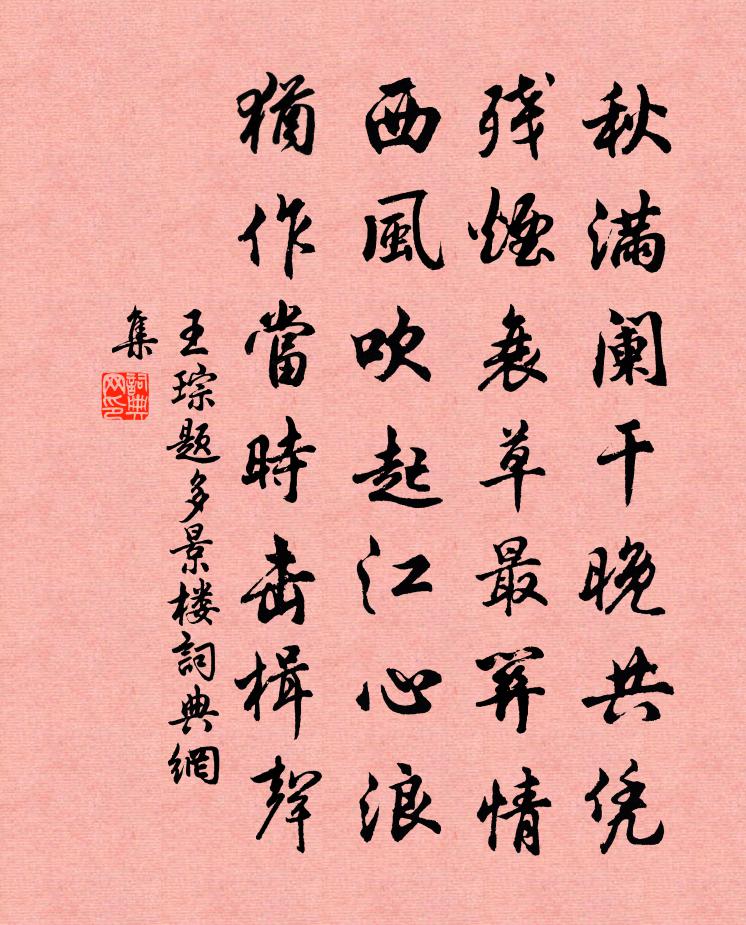 秋满阑干晚共凭
残烟衰草最关情
西風吹起江心浪
猶作當時击楫聲
王琮题多景楼詞典網
集
詞典网印